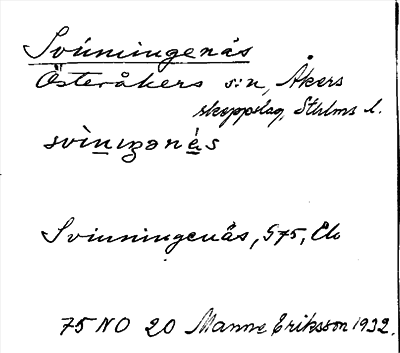 Svinningenäs
Österåkers s:n, Åkers
skeppslag, Sthlms l.
svìnɩŋənés
Svinningenäs, G75, Eb
75 NO 20 Manne Eriksson 1932.